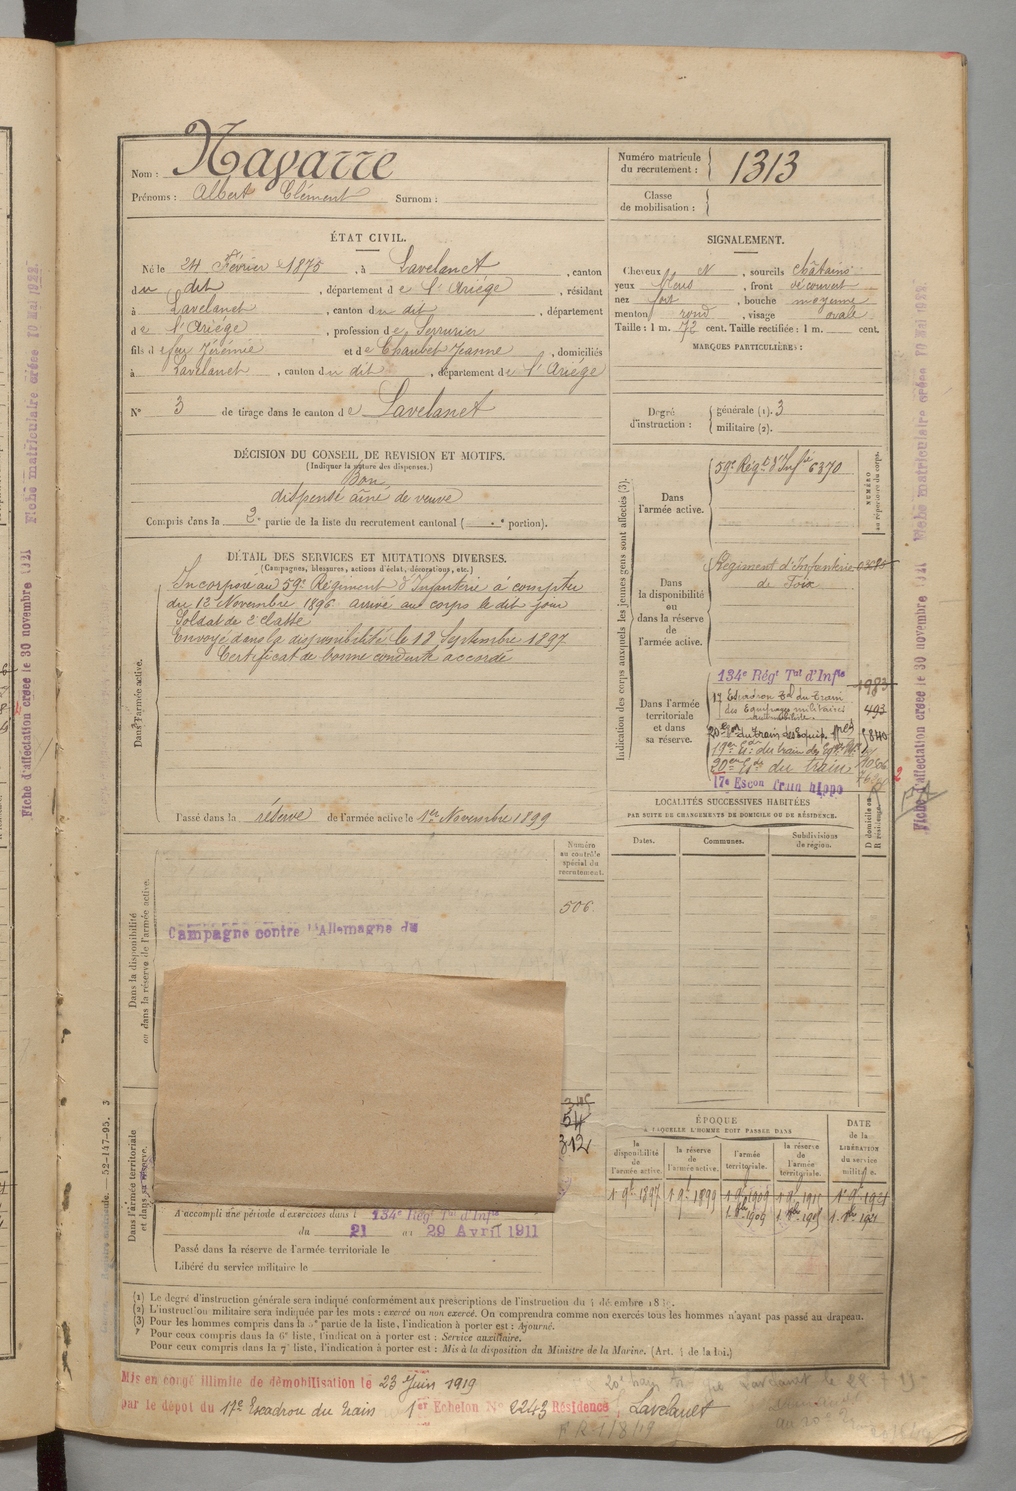 Nom : Navarre
Prénoms : Albert Clément Surnom :
Numéro matricule du recrutement : 1313
Classe de mobilisation :
ÉTAT CIVIL.
Né le 24 Février 1875, à Lavelanet, canton
du dit, département de l'Ariége, résidant
à Lavelanet, canton du dit, département
de l'Ariége, profession de Serrurier
fils de feu Jérémie et de Chaubet Jeanne, domiciliés
à Lavelanet, canton du dit, département de l'Ariége
N° 3 de tirage dans le canton de Lavelanet
SIGNALEMENT.
Cheveux N, sourcils châtains
yeux bleus, front découvert
nez fort, bouche moyenne
menton rond, visage ovale
Taille : 1 m. 72 cent. Taille rectifiée : 1 m. cent.
MARQUES PARTICULIÈRES :
Degré d'instruction : générale (1). 3
militaire (2).
DÉCISION DU CONSEIL DE REVISION ET MOTIFS.
(Indiquer la nature des dispenses.)
Bon
dispensé aîné de veuve
Compris dans la 2e partie de la liste du recrutement cantonal ( portion).
DÉTAIL DES SERVICES ET MUTATIONS DIVERSES.
(Campagnes, blessures, actions d'éclat, décorations, etc.)
Dans l'armée active.
Incorporé au 59e Régiment d'Infanterie à compter
du 12 Novembre 1896 arrivé au corps le dit jour
Soldat de 2e classe
Envoyé dans la disponibilité le 18 Septembre 1897
Certificat de bonne conduite accordé
Passé dans la réserve de l'armée active le 1er Novembre 1899
Indication des corps auxquels les jeunes gens sont affectés (3).
NUMÉRO au répertoire du corps.
Dans l'armée active.
59e Régt d'Infie 6370
Dans la disponibilité ou dans la réserve de l'armée active.
Régiment d'Infanterie
de Foix
Dans l'armée territoriale et dans sa réserve.
134e Régt Tal d'Infie 1983
17 Escadron Tal du Train
des Equipages militaires 493
Automobiliste
20e Eon du Train des Equip. Mres 840
19e Eon du train des Eq.
20e Eon du train
17e Escon Train hippo
LOCALITÉS SUCCESSIVES HABITÉES
PAR SUITE DE CHANGEMENTS DE DOMICILE OU DE RÉSIDENCE.
Dates. Communes. Subdivisions de région. D domicile ou R résidence.
Dans la disponibilité ou dans la réserve de l'armée active.
Numéro au contrôle spécial du recrutement.
506
Campagne contre l'Allemagne du
54
312
Dans l'armée territoriale et dans sa réserve.
A accompli une période d'exercices dans l 134e Régt Tal d'Infie
du 21 au 29 Avril 1911
Passé dans la réserve de l'armée territoriale le
Libéré du service militaire le
ÉPOQUE
A LAQUELLE L'HOMME DOIT PASSER DANS
la disponibilité de l'armée active. la réserve de l'armée active. l'armée territoriale. la réserve de l'armée territoriale. DATE de la LIBÉRATION du service militaire.
1 9bre 1897 1 9bre 1899 1 9bre 1909 1 9bre 1915 1er 9bre 1921
(1) Le degré d'instruction générale sera indiqué conformément aux prescriptions de l'instruction du 4 décembre 18
(2) L'instruction militaire sera indiquée par les mots : exercé ou non exercé. On comprendra comme non exercés tous les hommes n'ayant pas passé au drapeau.
(3) Pour les hommes compris dans la 5e partie de la liste, l'indication à porter est : Ajourné.
Pour ceux compris dans la 6e liste, l'indication à porter est : Service auxiliaire.
Pour ceux compris dans la 7e liste, l'indication à porter est : Mis à la disposition du Ministre de la Marine. (Art. 4 de la loi.)
Mis en congé illimité de démobilisation le 23 Juin 1919
par le dépôt du 17e Escadron du Train 1er Echelon N° 2243 Résidence Lavelanet
F R 1/8/19
Fiche d'affectation créée le 30 novembre 1921
Fiche matriculaire créée 10 Mai 1922
Fiche d'affectation créée le 30 novembre 1921
Fiche matriculaire créée 10 Mai 1922
52-147-95. 3